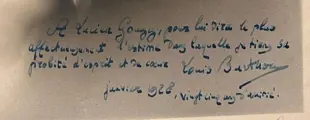 A Lucien Gougy, pour lui dire le plus
affectueusement l'estime dans laquelle je tiens sa
probité d'esprit et de cœur Louis Barthou
janvier 1928, vingt cinq ans d'amitié.